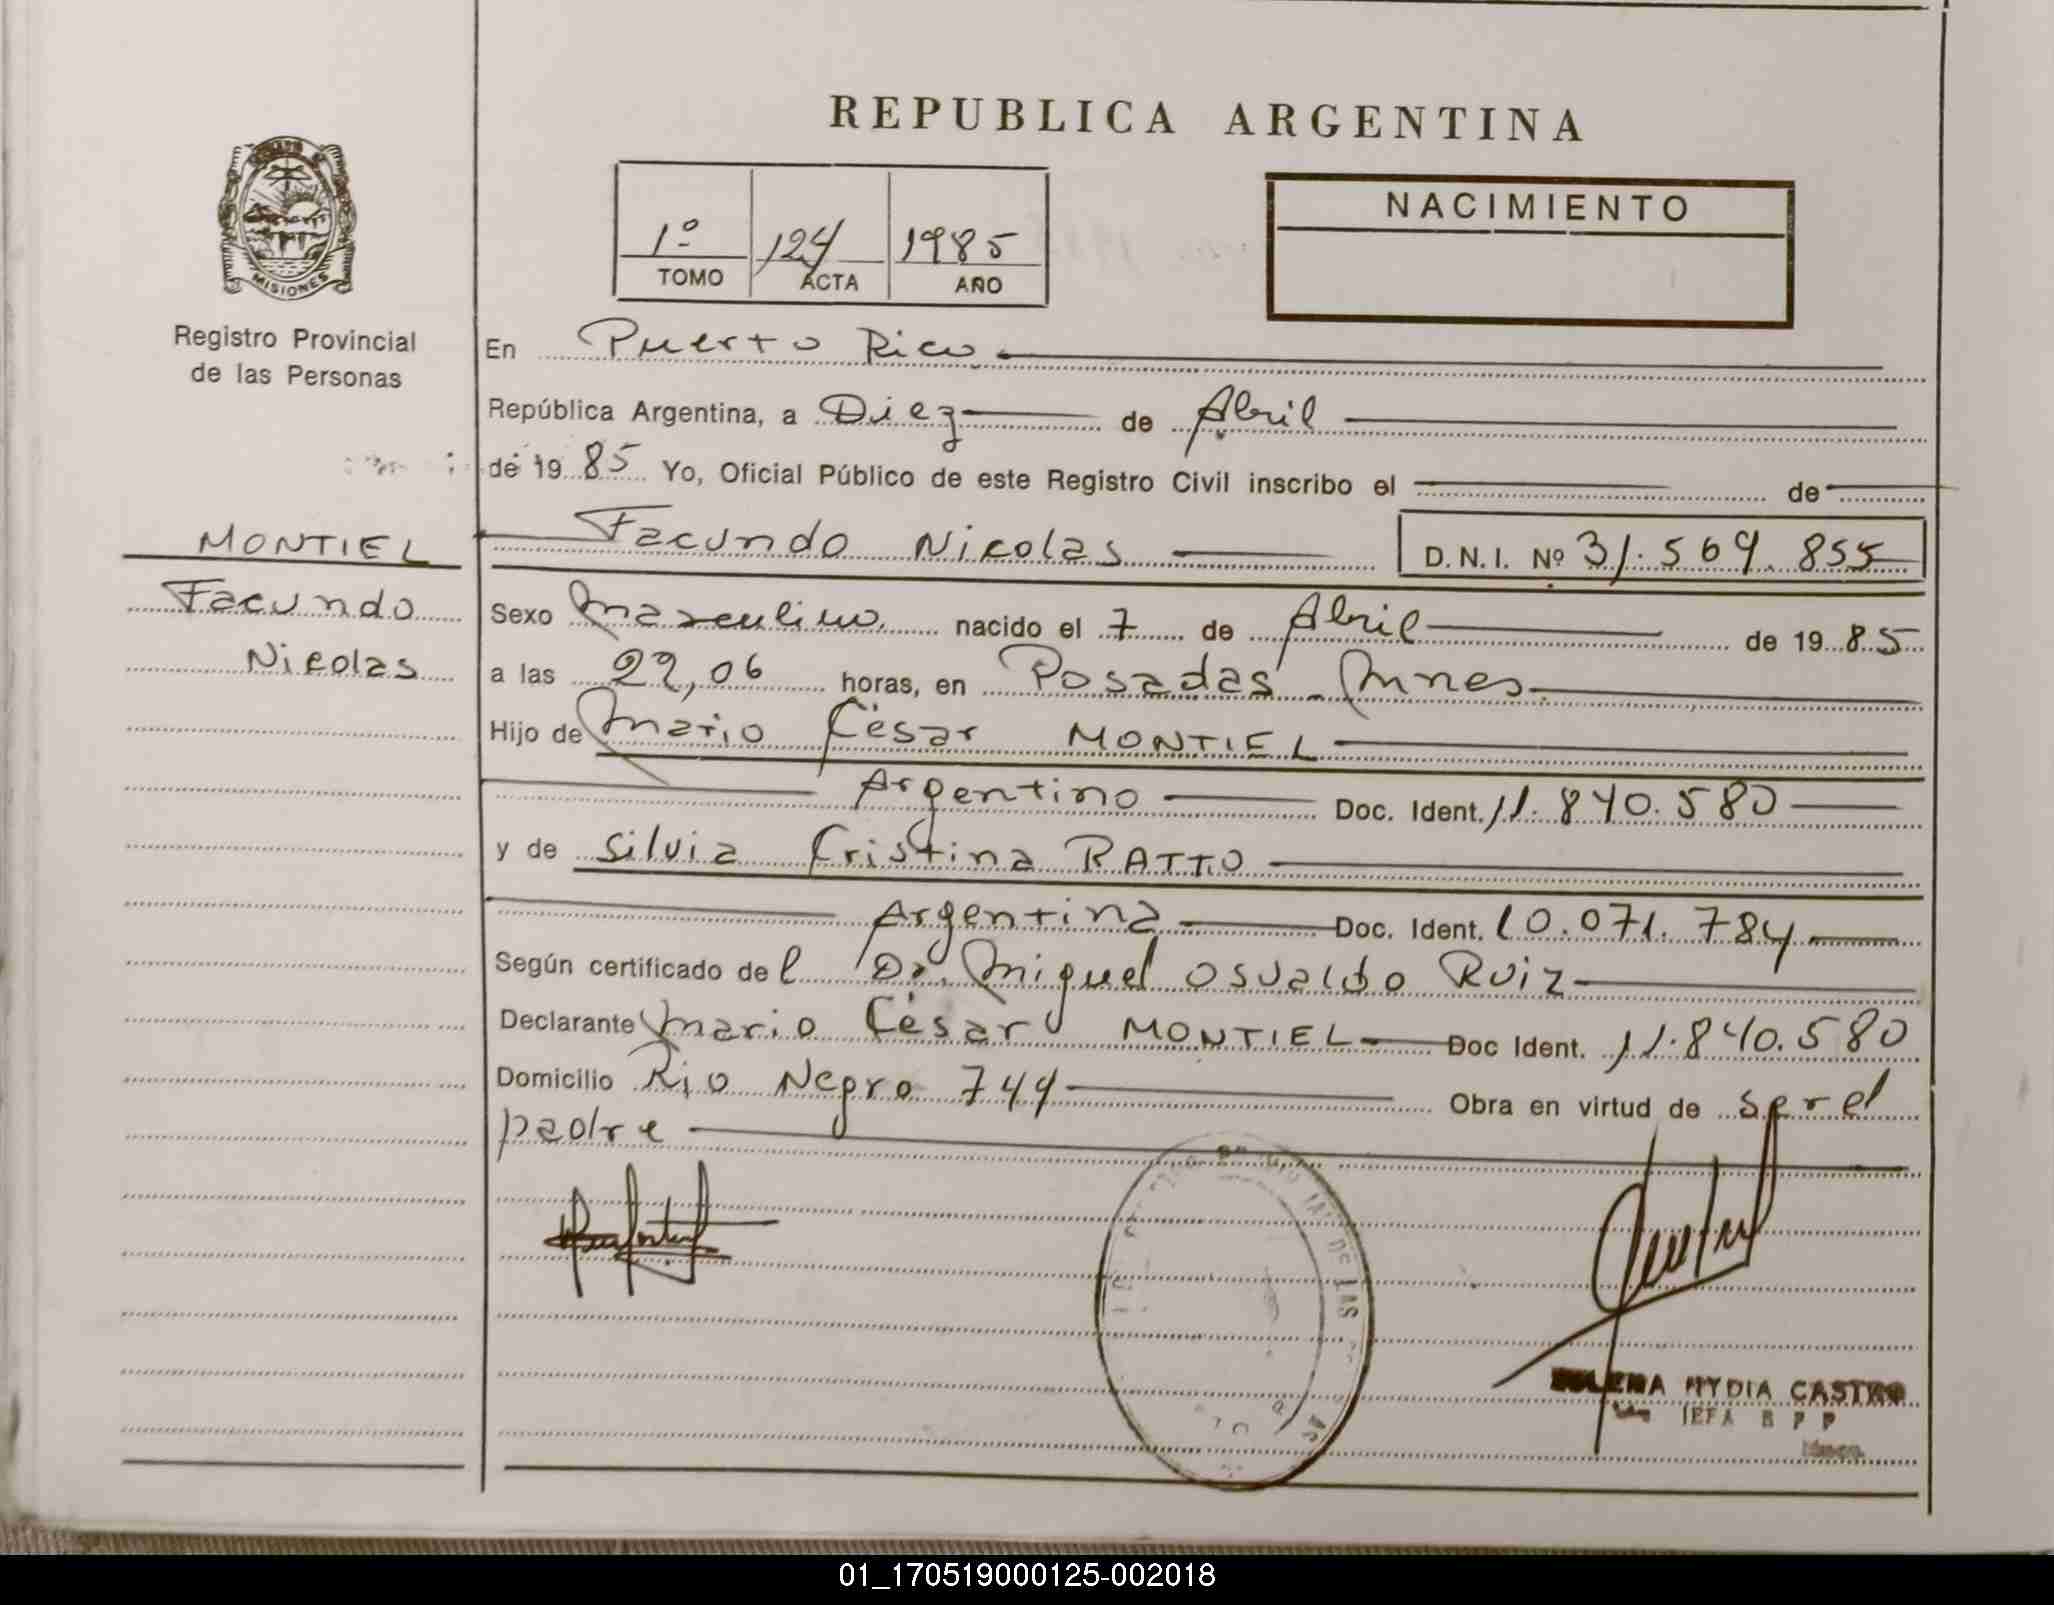 REPUBLICA ARGENTINA
NACIMIENTO
1º 124 1985
TOMO ACTA AÑO
MISIONES
Registro Provincial
de las Personas
MONTIEL
Facundo
Nicolas
En Puerto Rico
República Argentina, a Diez de Abril
de 19 85 Yo, Oficial Público de este Registro Civil inscribo el de
Facundo Nicolas D.N.I. Nº 31.569.855
Sexo Masculino nacido el 7 de Abril de 19 85
a las 22,06 horas, en Posadas Mnes
Hijo de Mario César MONTIEL
Argentino Doc. Ident. 11.840.580
y de Silvia Cristina RATTO
Argentina Doc. Ident. 10.071.784
Según certificado de l Dr. Miguel Osvaldo Ruiz
Declarante Mario César MONTIEL Doc Ident. 11.840.580
Domicilio Rio Negro 744 Obra en virtud de ser el
padre
DE LAS
NYDIA CASTRO
01_170519000125-002018